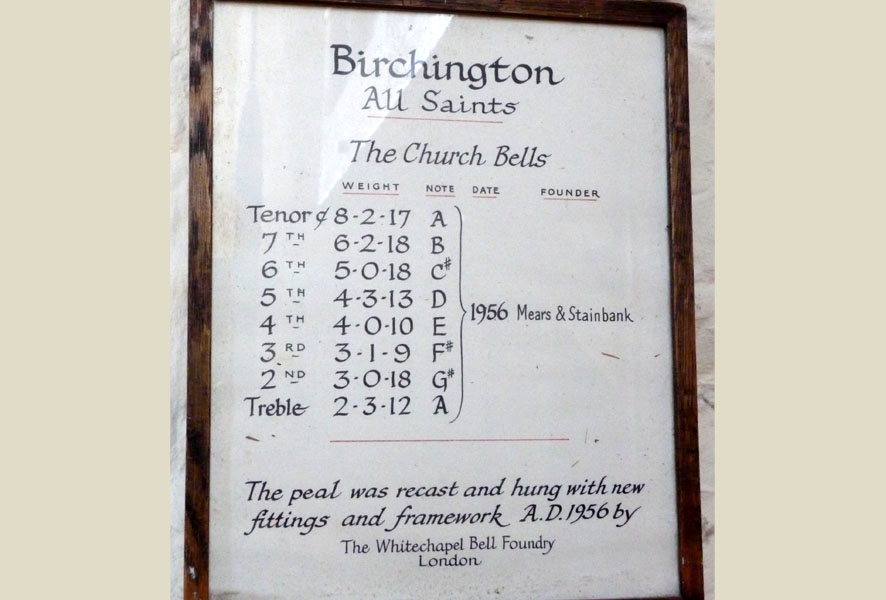 Birchington
All Saints
The Church Bells
WEIGHT NOTE DATE FOUNDER
Tenor ¢ 8-2-17 A
7TH 6-2-18 B
6TH 5-0-18 C#
5TH 4-3-13 D
4TH 4-0-10 E
3RD 3-1-9 F#
2ND 3-0-18 G#
Treble 2-3-12 A
1956 Mears & Stainbank
The peal was recast and hung with new
fittings and framework A.D.1956 by
The Whitechapel Bell Foundry
London